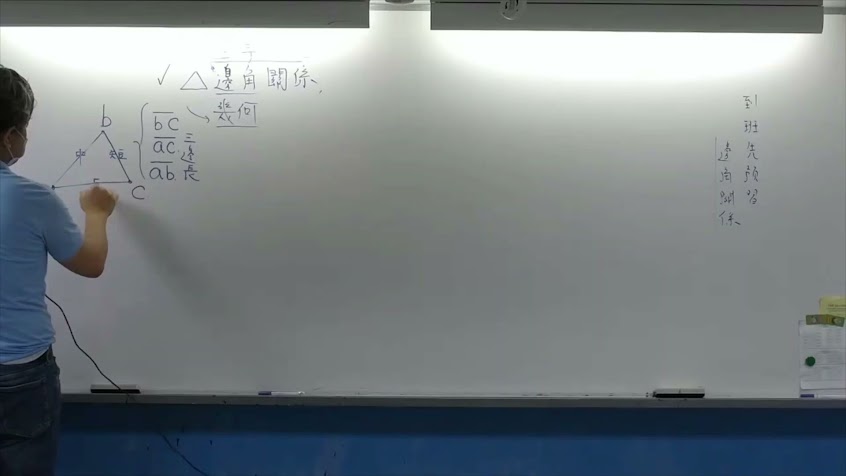 ✓ △ 邊角關係、
幾何
b
bc
ac
ab
三邊長
中
短
C
到班先預習
邊角關係、